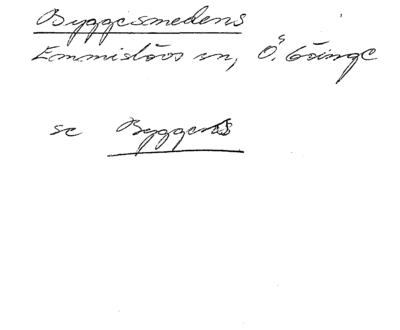 Byggesmedens
Emmislövs sn, Ö. Göinge
se Byggens